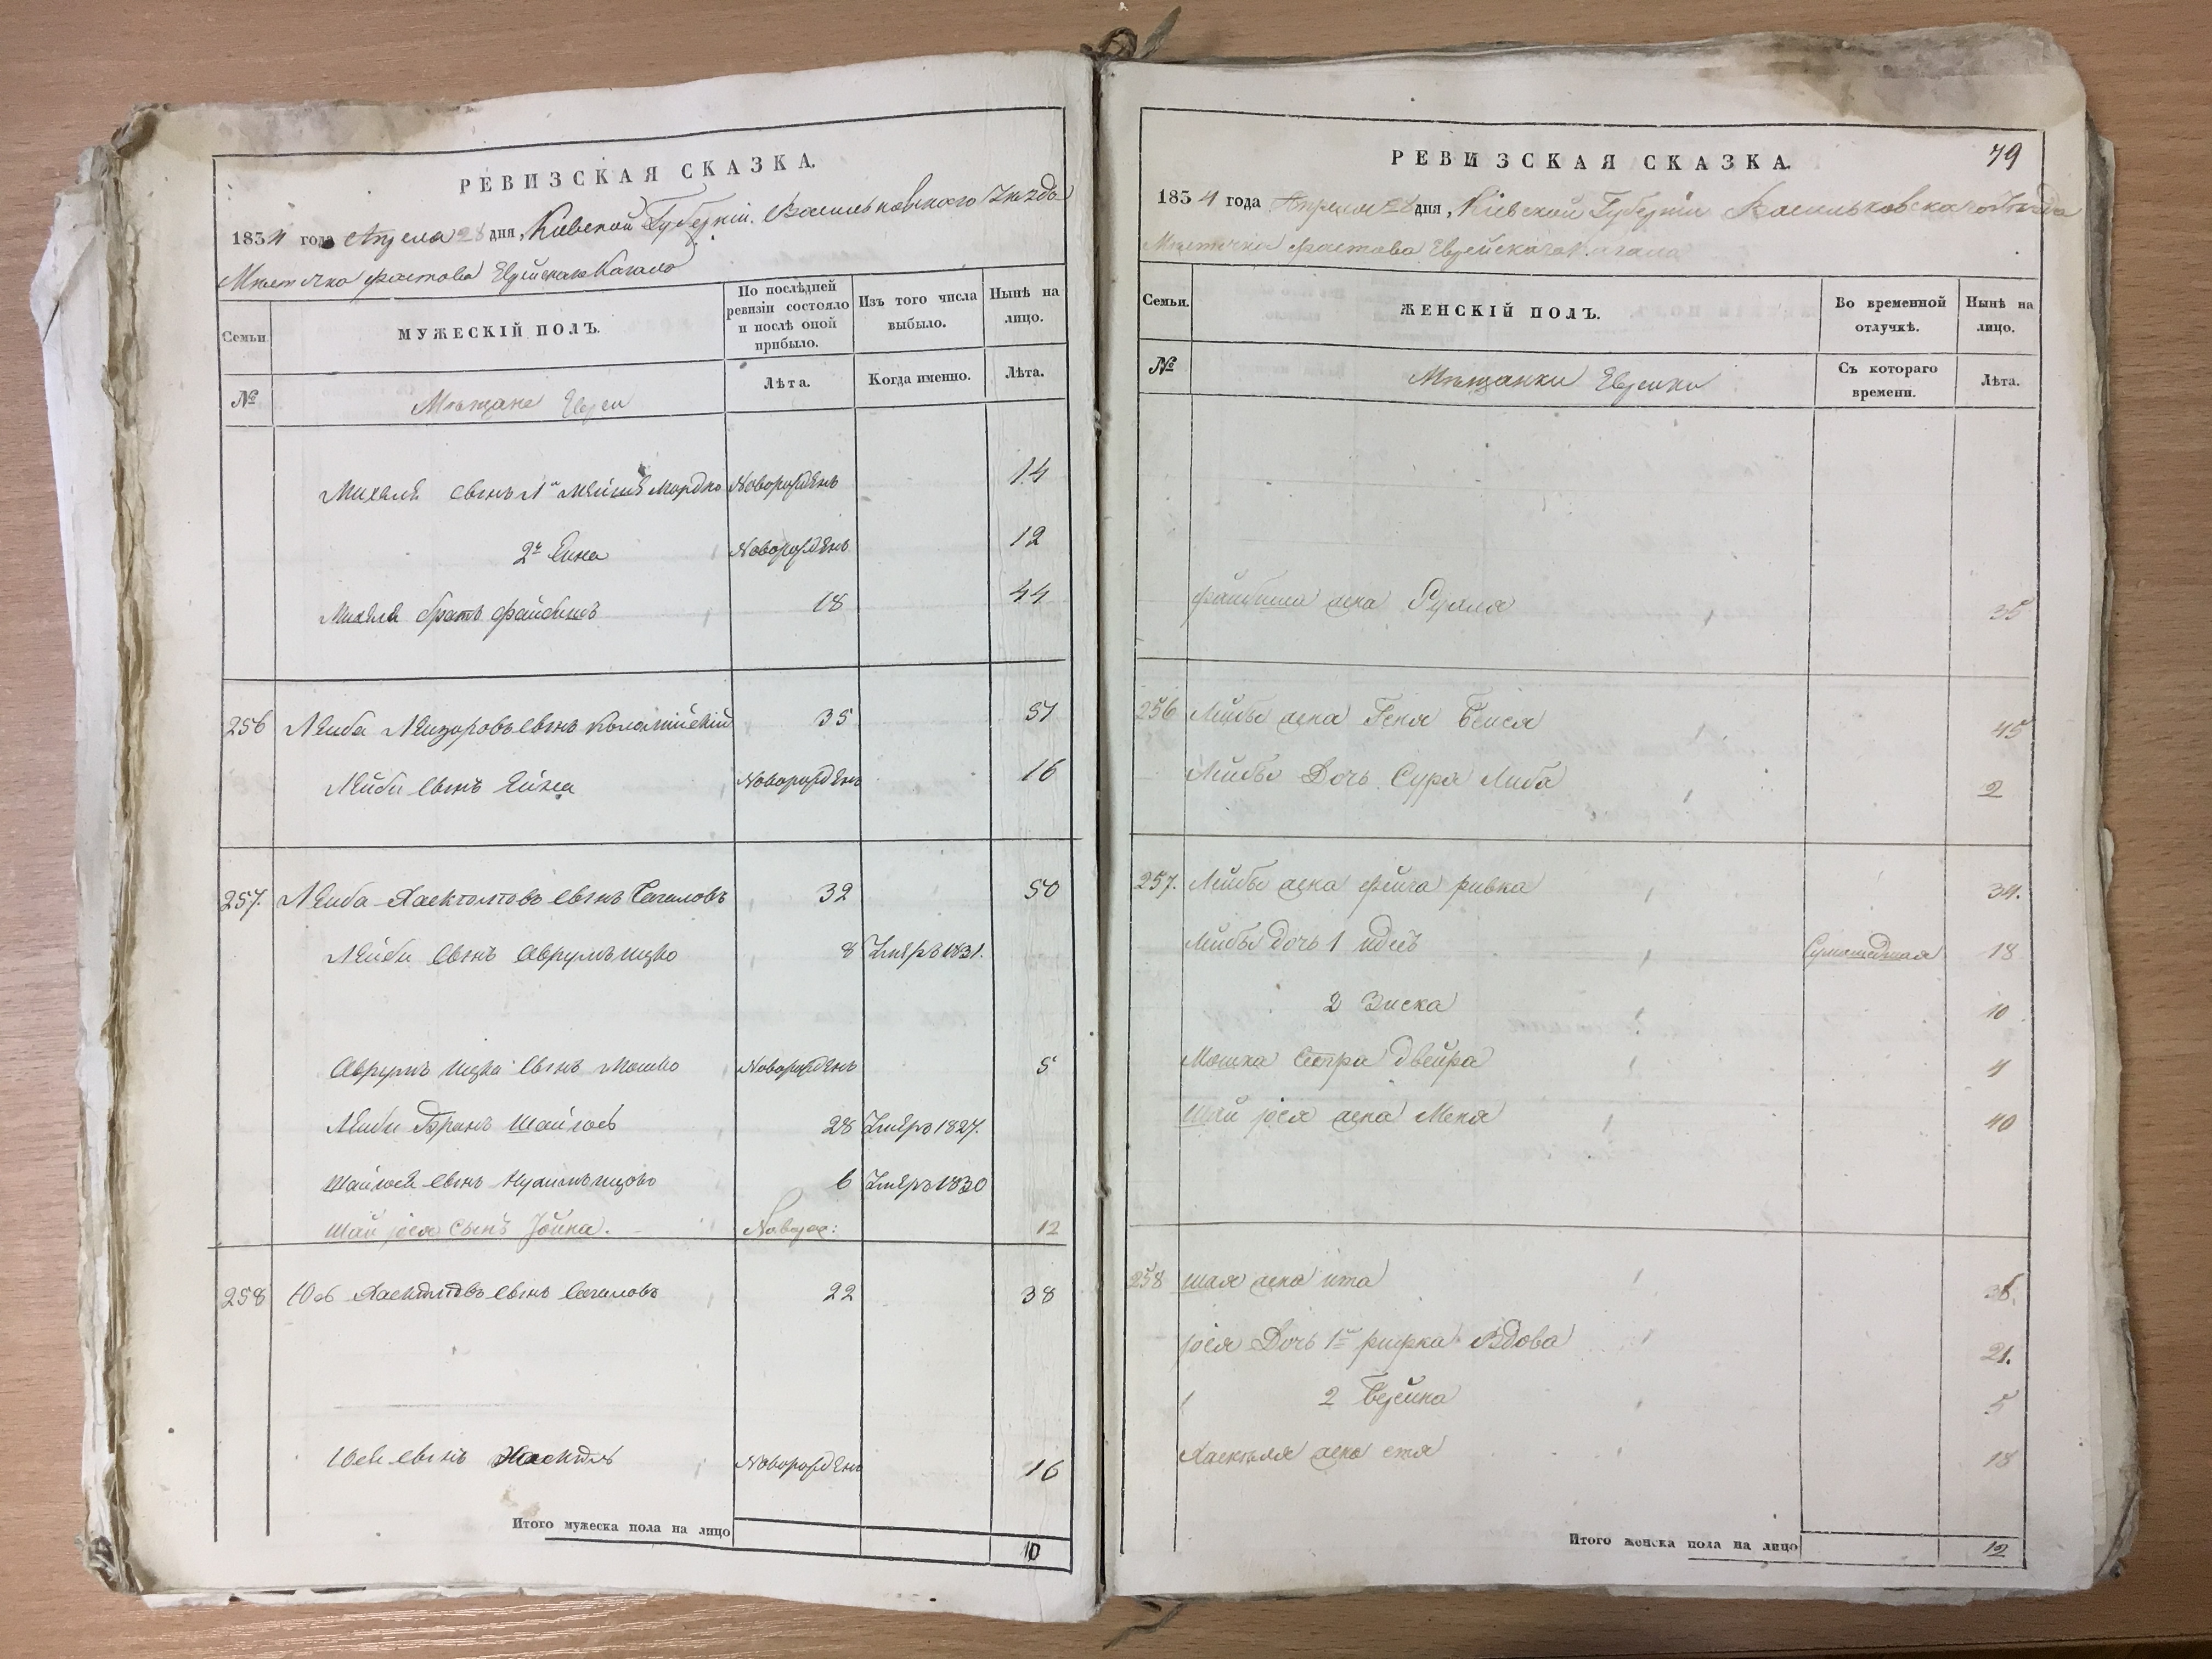 РЕВИЗСКАЯ СКАЗКА.
1834 года Апреля 28 дня, Киевской Губерніи Васильковскаго Уезда
Местечка Фастова Еврейскаго Кагала
Семьи.
МУЖЕСКІЙ ПОЛЪ.
По послѣдней ревизіи состояло и послѣ оной прибыло.
Изъ того числа выбыло.
Нынѣ на лицо.
№
Мещане Евреи
Лѣта.
Когда именно.
Лѣта.
Михеля сынъ 1й Мордко Новорожденъ 14
2й Новорожденъ 12
Михеля братъ Файбишъ 18 44
256 Лейба сынъ 35 51
Лейби сынъ Новорожденъ 16
257. Лейба сынъ Сегаловъ 32 50
Лейби сынъ Аврумъ Ицко 8 Умеръ 1831.
Аврумъ Ицка сынъ Мошко Новорожденъ 5
Лейби Братъ Шай 28 Умеръ 1827.
сынъ 6 Умеръ 1830
Шай Іося сынъ Іойна. Новорож: 12
258 сынъ Сегаловъ 22 38
сынъ Новорожденъ 16
Итого мужеска пола на лицо 10
РЕВИЗСКАЯ СКАЗКА.
79
1834 года Апреля 28 дня, Кіевской Губерніи Васильковскаго Уезда
Местечка Фастова Еврейскаго Кагала
Семьи.
ЖЕНСКІЙ ПОЛЪ.
Во временной отлучкѣ.
Нынѣ на лицо.
№
Мещанки Еврейки
Съ котораго времени.
Лѣта.
Файбиша жена 35
256 Лейбы жена Геня Бейся 45
Лейбы Дочь Сура Либа 2
257. Лейбы жена Фейга Ривка 39.
Лейбы дочь 1 Идесъ Сумашедшая 18
2 Зиска 10
Мошка Сестра Двейра 4
Шай Іося жена Меня 40
258 жена Ита
Іося Дочь 1я Рифка Вдова 21.
2 5
Хаскеля жена 18
Итого женска пола на лицо 12